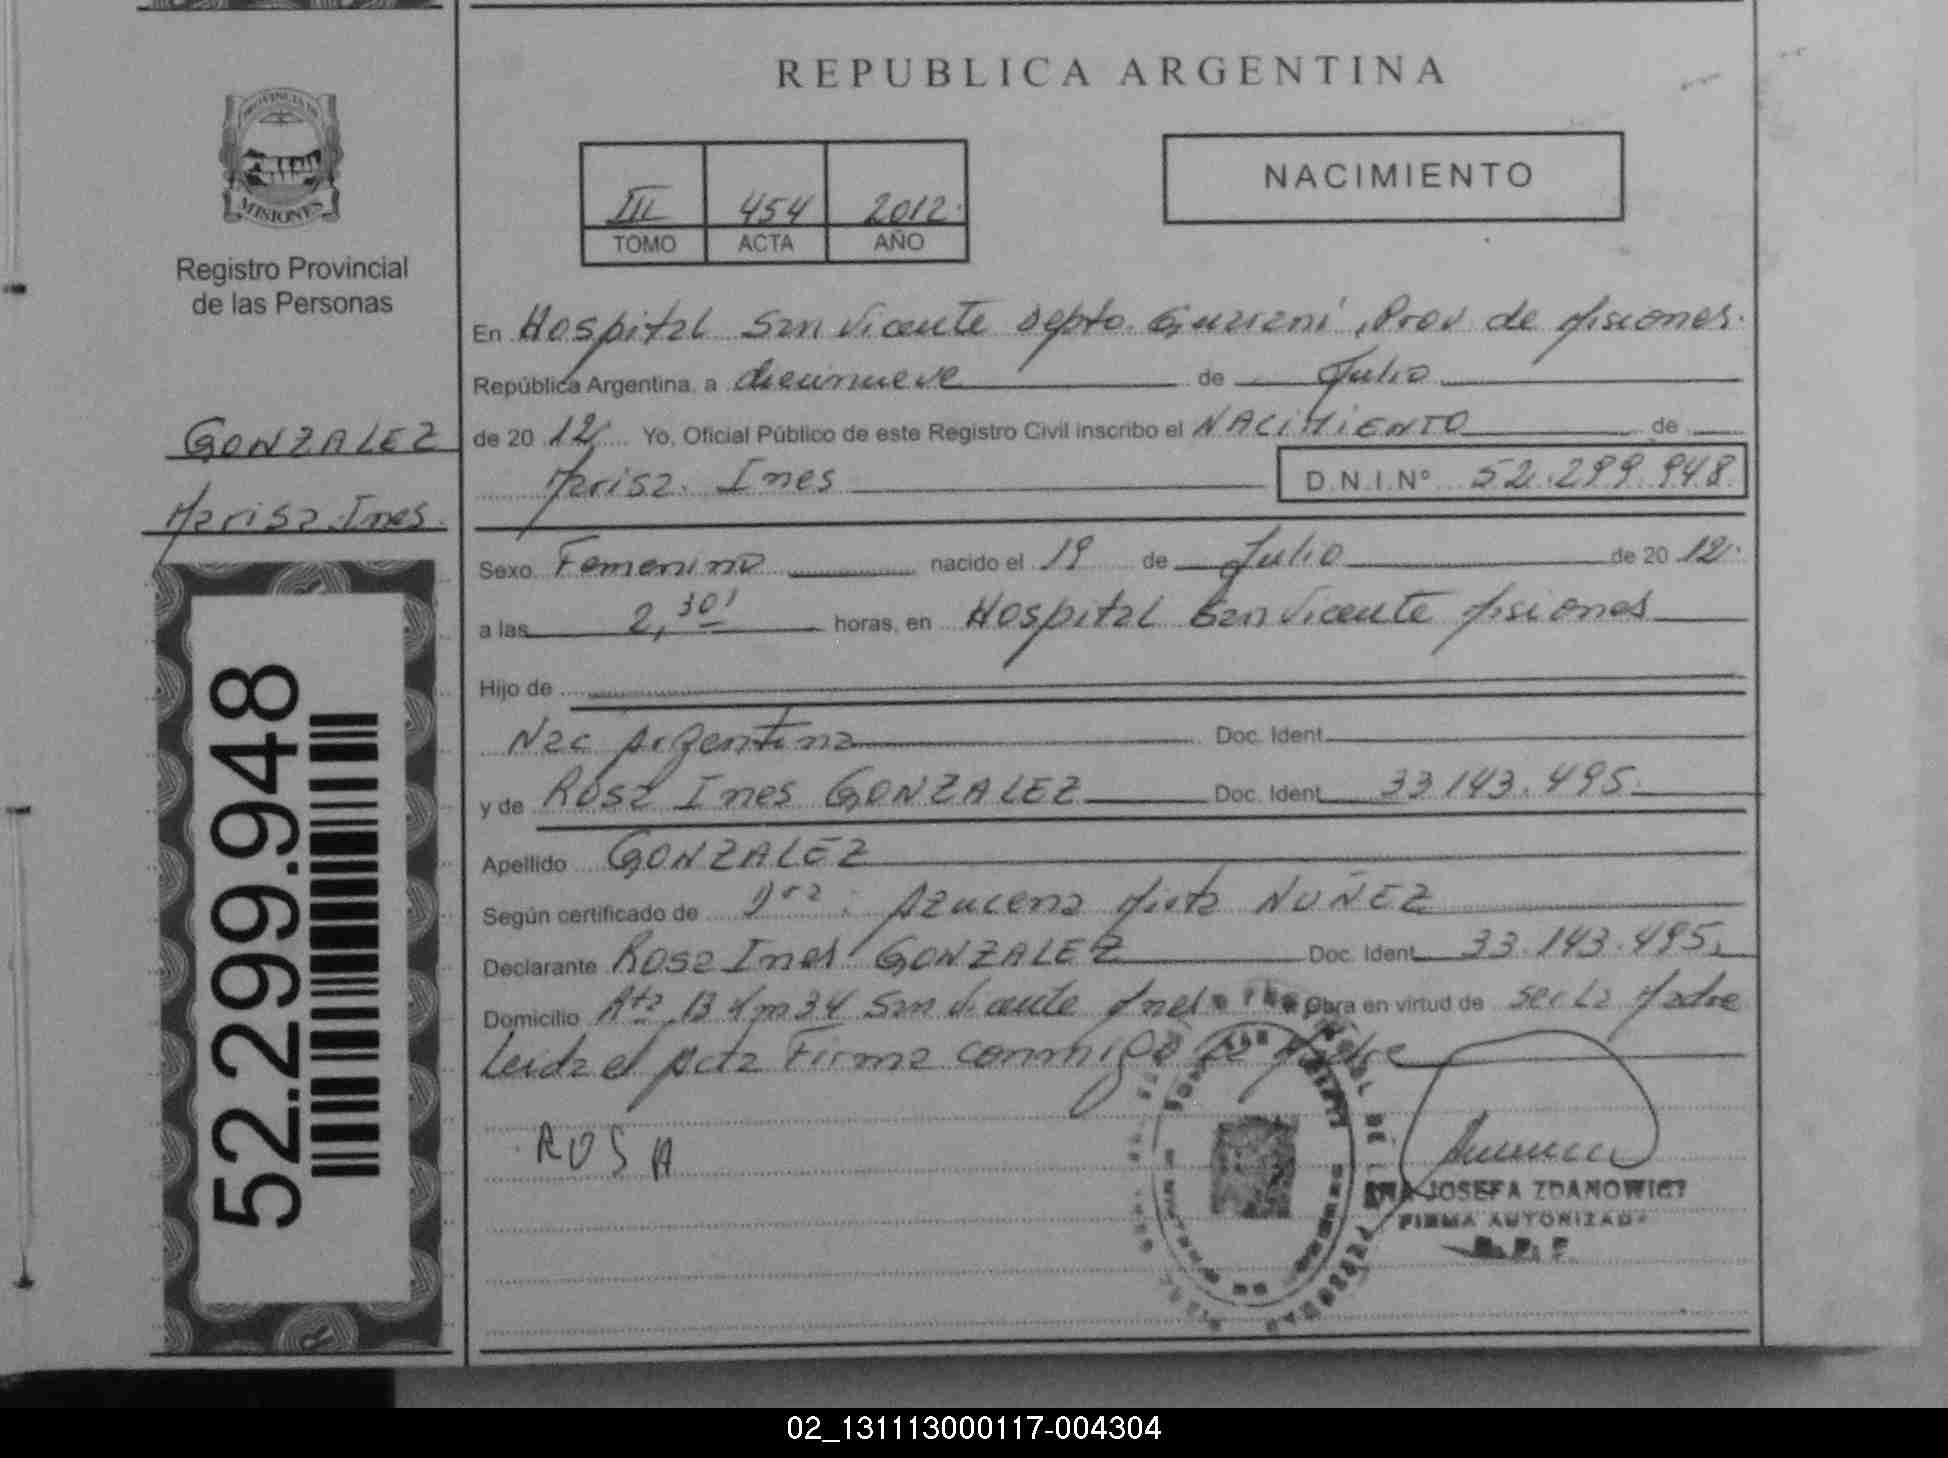 REPUBLICA ARGENTINA
PROVINCIA DE
MISIONES
Registro Provincial
de las Personas
III 454 2012
TOMO ACTA AÑO
NACIMIENTO
GONZALEZ
Marisa Ines
52.299.948
En Hospital San Vicente Depto. Guarani, Prov de Misiones.
República Argentina, a diecinueve de Julio
de 20 12 Yo, Oficial Público de este Registro Civil inscribo el NACIMIENTO de
Marisa Ines D.N.I.Nº 52.299.948
Sexo Femenino nacido el 19 de Julio de 20 12
a las 2,30' horas, en Hospital San Vicente Misiones
Hijo de
Nac Argentina Doc. Ident.
y de Rosa Ines GONZALEZ Doc. Ident. 33.143.495.
Apellido GONZALEZ
Según certificado de Dra: Azucena Mirta NUÑEZ
Declarante Rosa Ines GONZALEZ Doc. Ident. 33.143.495
Domicilio Rta 13 Km 34 San Vicente Mnes Obra en virtud de ser la Madre
Leida el Acta Firma conmigo la Madre
ROSA
JOSEFA ZDANOWICZ
FIRMA AUTORIZADA
R.P.F.
02_131113000117-004304